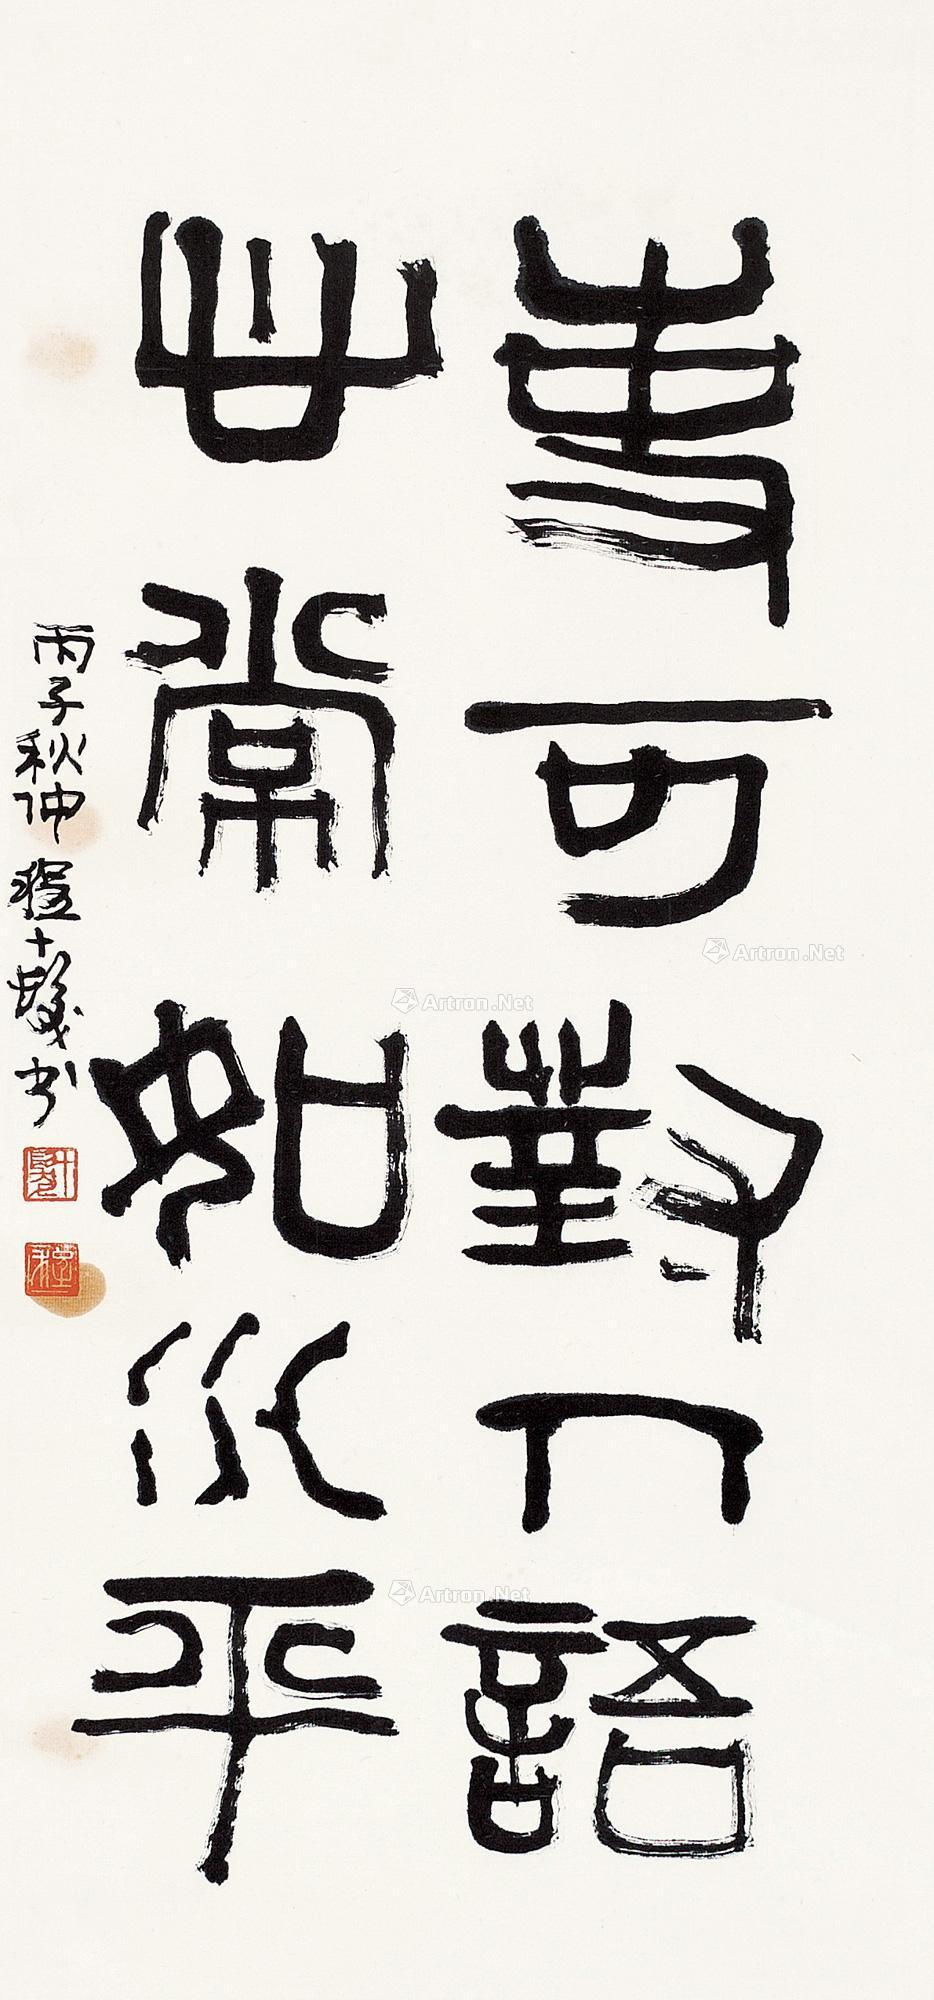 事可對人語
世常如水平
丙子秋仲程十髮書
十髮
程
Artron.Net
Artron.Net
Artron.Net